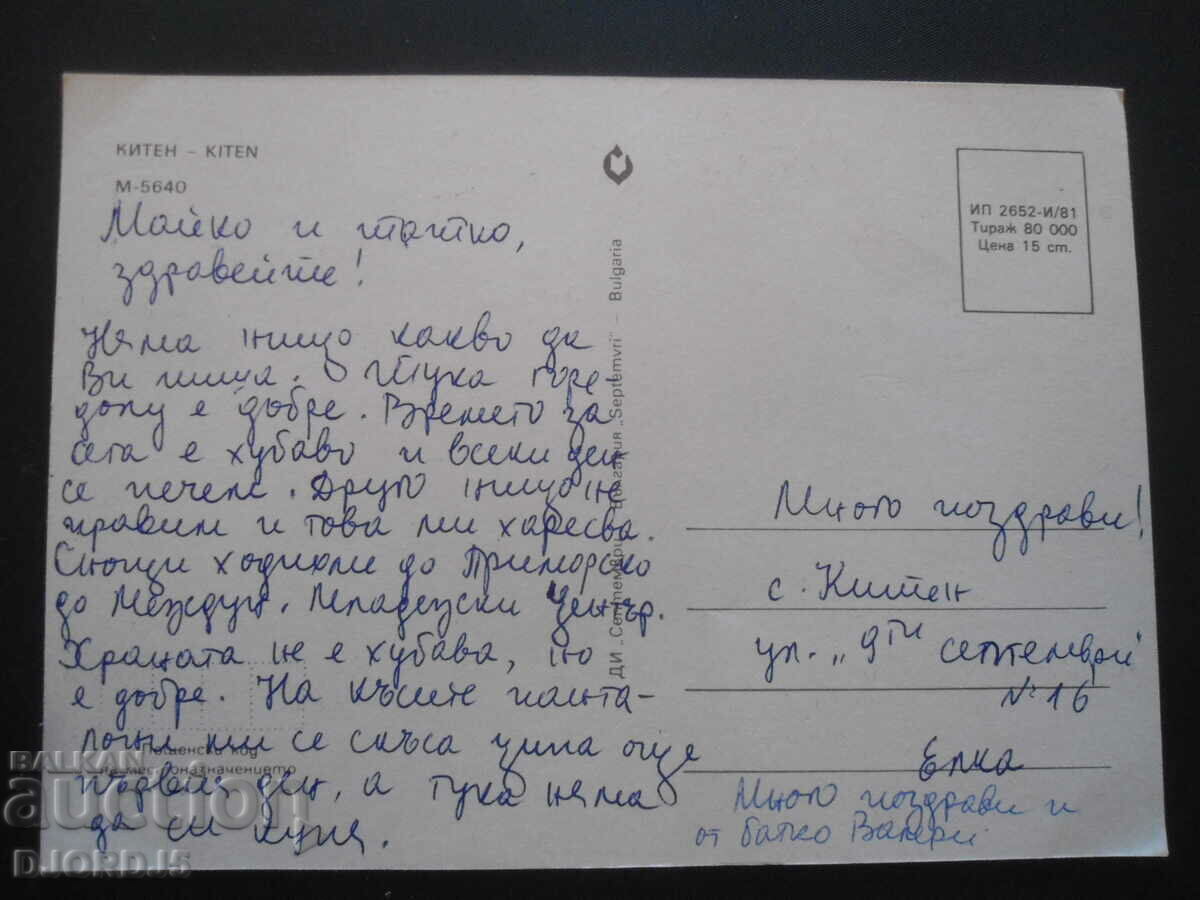 КИТЕН – KITEN
М-5640
Майко и татко,
здравейте!
Няма нищо какво да
Ви пиша. Тука горе-
долу е добре. Времето за
сега е хубаво и всеки ден
се печем. Друго нищо не
правим и това ми харесва.
Снощи ходихме до Приморско
до Междун. Младежски център.
Храната не е хубава, но
е добре. На късите панта-
лони ми се скъса ципа още
първия ден, а тука няма
да си купя.
Пощенски код
на местоназначението
ДИ „Септември“ България „Septemvri“ – Bulgaria
ИП 2652-И/81
Тираж 80 000
Цена 15 ст.
Много поздрави!
с. Китен
ул. „9ти септември“
№ 16
Елка
Много поздрави и
от батко Валери
BALKAN
auction
DJORDJ5